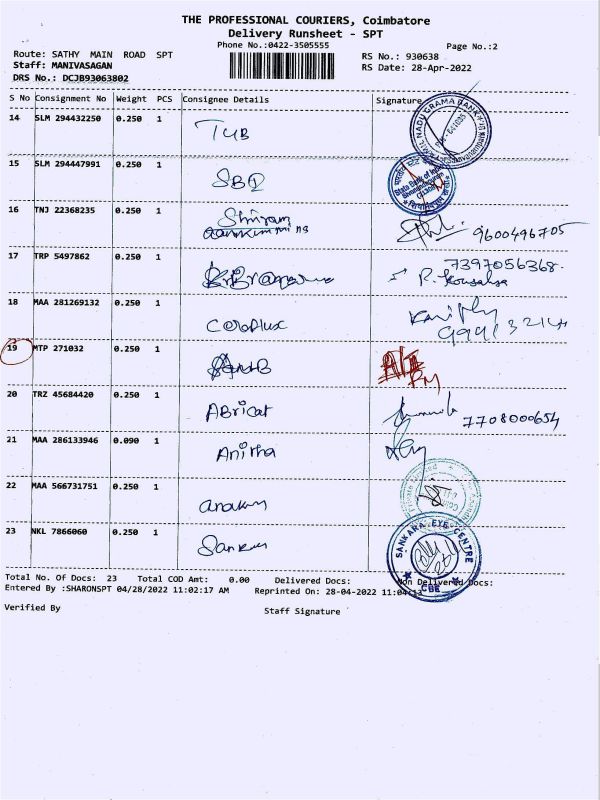 THE PROFESSIONAL COURIERS, Coimbatore
Delivery Runsheet - SPT
Phone No.:0422-3505555
Page No.:2
Route: SATHY MAIN ROAD SPT
RS No.: 930638
Staff: MANIVASAGAN
RS Date: 28-Apr-2022
DRS No.: DCJB93063802
S No Consignment No Weight PCS Consignee Details Signature
14 SLM 294432250 0.250 1 TUB
15 SLM 294447991 0.250 1 SBI
State Bank of India
16 TNJ 22368235 0.250 1 Shriram
9600496705
17 TRP 5497862 0.250 1
7397056368.
P. Kousalya
18 MAA 281269132 0.250 1 Coroplux
19 MTP 271032 0.250 1
20 TRZ 45684420 0.250 1 Abricat
7708000654
21 MAA 286133946 0.090 1 Anitha
22 MAA 566731751 0.250 1
23 NKL 7866060 0.250 1
SANKARA EYE CENTRE
CBE
Total No. Of Docs: 23 Total COD Amt: 0.00 Delivered Docs: Non Delivered Docs:
Entered By :SHARONSPT 04/28/2022 11:02:17 AM Reprinted On: 28-04-2022 11:04:13
Verified By
Staff Signature